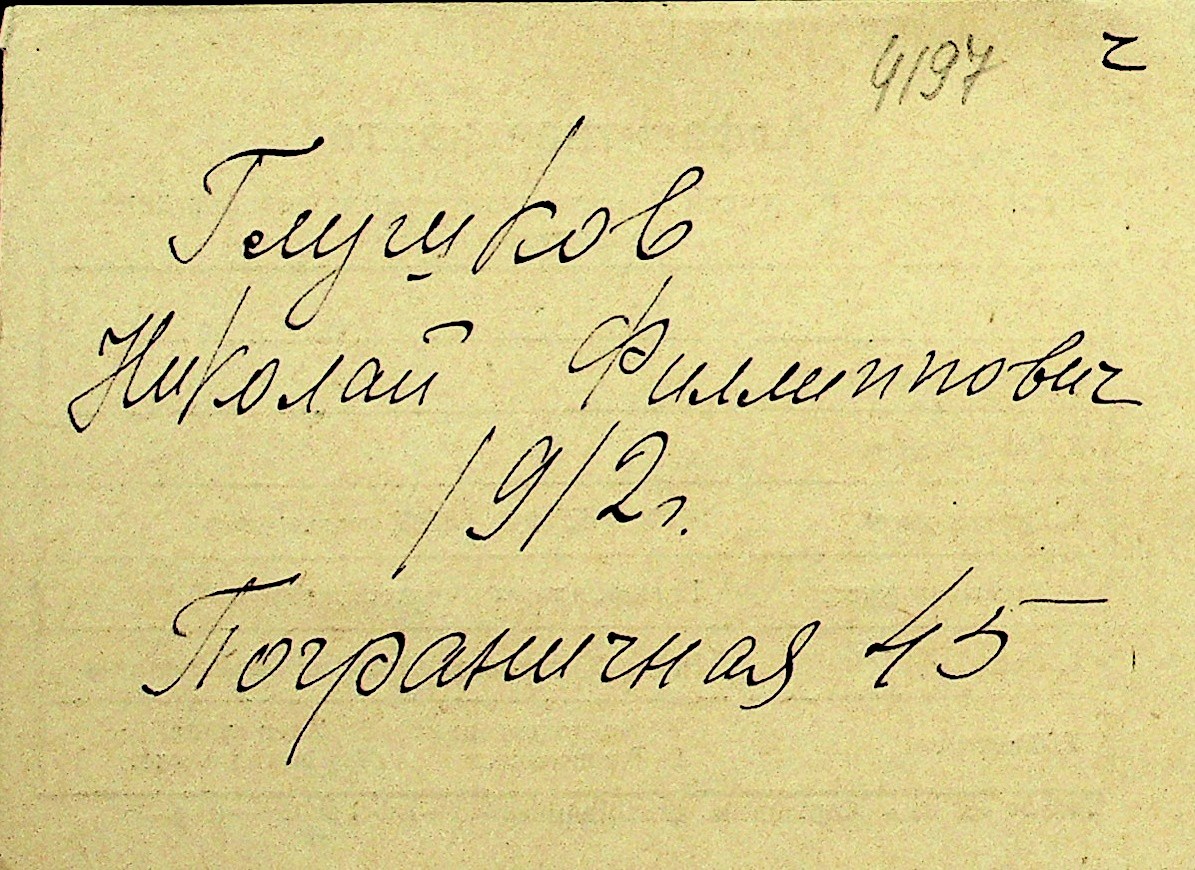 4197 ч
Глушков
Николай Филлиппович
1912г.
Пограничная 45